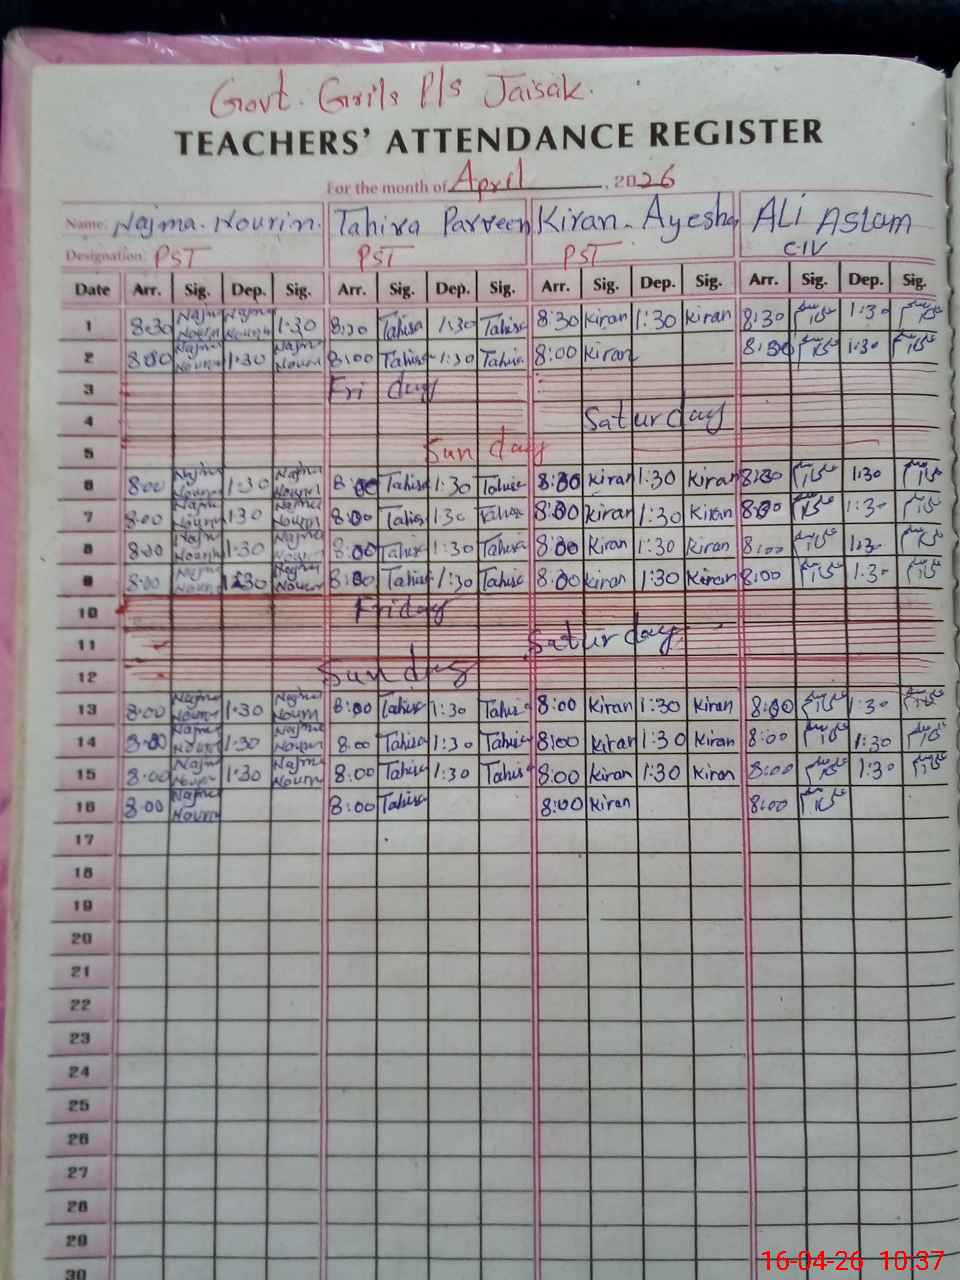 Govt. Grils P/s Jaisak.
TEACHERS' ATTENDANCE REGISTER
For the month of April, 2026
Name: Najma. Nourin. Tahira Parveen Kiran. Ayesha ALi ASLam
Designation: PST PST PST CIV
Date Arr. Sig. Dep. Sig. Arr. Sig. Dep. Sig. Arr. Sig. Dep. Sig. Arr. Sig. Dep. Sig.
1 8:30 Najma Nourin Najma Nourin 1:30 8:30 Tahira 1:30 Tahira 8:30 Kiran 1:30 Kiran 8:30 1:30
2 8:00 Najma Nourin 1:30 Najma Nourin 8:00 Tahira 1:30 Tahira 8:00 Kiran 8:00 1:30
3 Fri day
4 Saturday
5 Sun day
6 8:00 Najma Nourin 1:30 Najma Nourin 8:00 Tahira 1:30 Tahira 8:00 Kiran 1:30 Kiran 8:00 1:30
7 8:00 Najma Nourin 1:30 Najma Nourin 8:00 Tahira 1:30 Tahira 8:00 Kiran 1:30 Kiran 8:00 1:30
8 8:00 Najma Nourin 1:30 Najma Nourin 8:00 Tahira 1:30 Tahira 8:00 Kiran 1:30 Kiran 8:00 1:30
9 8:00 Najma Nourin 1:30 Najma Nourin 8:00 Tahira 1:30 Tahira 8:00 Kiran 1:30 Kiran 8:00 1:30
10 Friday
11 Saturday
12 Sunday
13 8:00 Najma Nourin 1:30 Najma Nourin 8:00 Tahira 1:30 Tahira 8:00 Kiran 1:30 Kiran 8:00 1:30
14 8:00 Najma Nourin 1:30 Najma Nourin 8:00 Tahira 1:30 Tahira 8:00 Kiran 1:30 Kiran 8:00 1:30
15 8:00 Najma Nourin 1:30 Najma Nourin 8:00 Tahira 1:30 Tahira 8:00 Kiran 1:30 Kiran 8:00 1:30
16 8:00 Najma Nourin 8:00 Tahira 8:00 Kiran 8:00
17
18
19
20
21
22
23
24
25
26
27
28
29
30
16-04-26 10:37